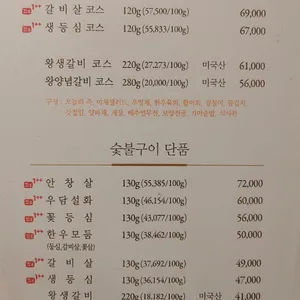 1++ 갈비살 코스 120g (57,500/100g) 69,000
1++ 생등심 코스 120g (55,833/100g) 67,000
왕생갈비 코스 220g (27,273/100g) 미국산 61,000
왕양념갈비 코스 280g (20,000/100g) 미국산 56,000
구성 :
숯불구이 단품
1++ 안창살 130g (55,385/100g) 72,000
1++ 우담설화 130g (46,154/100g) 60,000
1++ 꽃등심 130g (43,077/100g) 56,000
1++ 한우모둠 130g (38,462/100g) 50,000
(등심,갈비살,꽃심)
1++ 갈비살 130g (37,692/100g) 49,000
1++ 생등심 130g (36,154/100g) 47,000
왕생갈비 220g (18,182/100g) 미국산 41,000